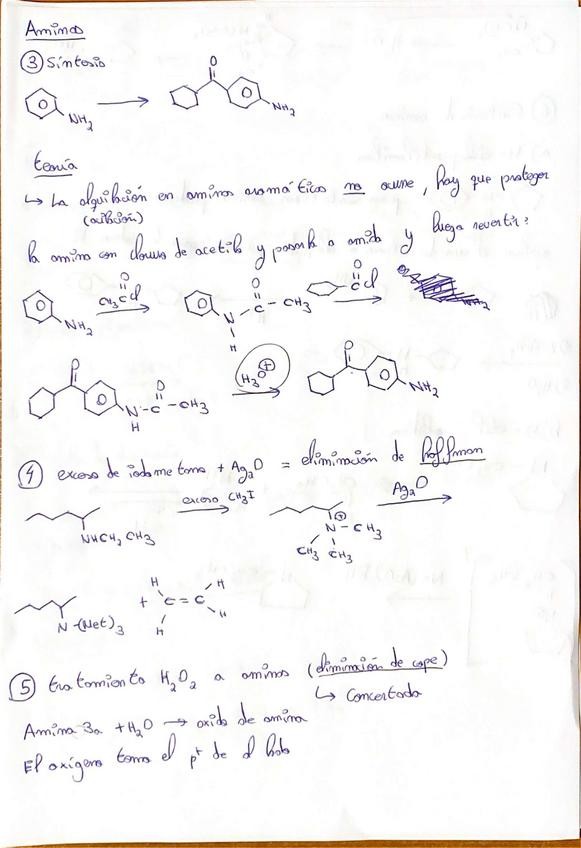 Aminas
③ Síntesis
O
NH2
NH2
teoría
↳ La alquilación en aminas aromáticas no ocurre, hay que proteger
(acilación)
la amina con cloruro de acetilo y pasarla a amida y luego revertir:
O
CH3CCl
O
CCl
NH2
N - C - CH3
O
H
H3O+
O
O
O
N - C - CH3
NH2
H
④ exceso de iodometano + Ag2O = eliminación de hoffman
exceso CH3I
Ag2O
NHCH2CH3
N - CH3
CH3
CH3
H
H
+ C = C
N -(Met)3
H
H
⑤ tratamiento H2O2 a aminas (eliminación de cope)
↳ Concertada
Amina 3a + H2O → oxido de amina
El oxígeno toma el p+ de el